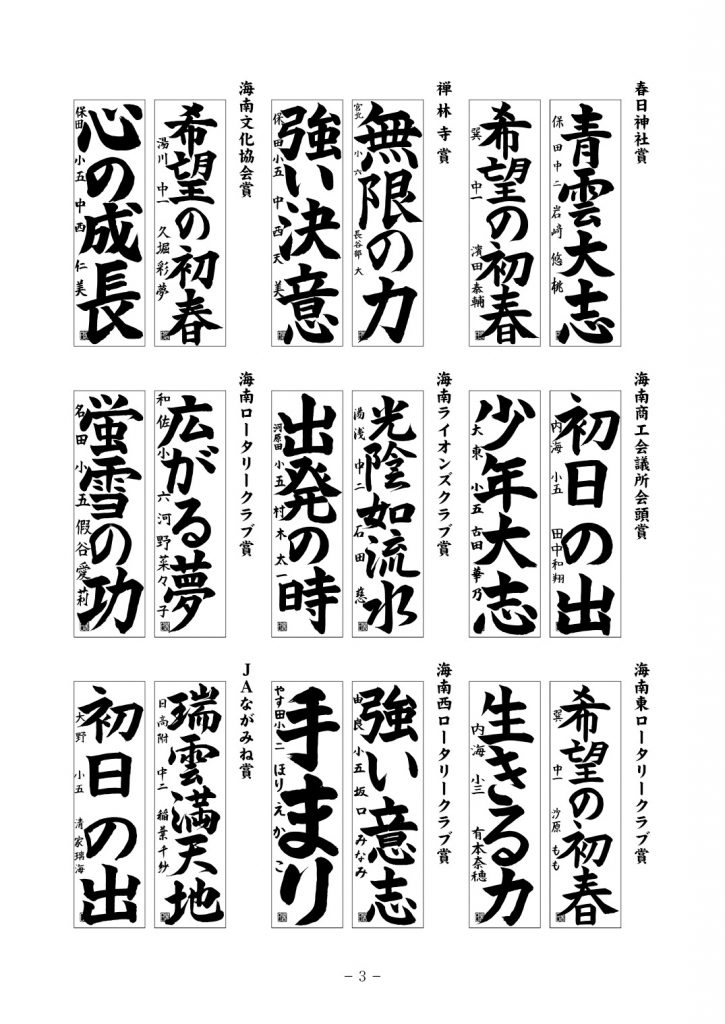 春日神社賞
青雲大志
保田中二 岩﨑悠桃
希望の初春
巽中一 濱田泰輔
禅林寺賞
無限の力
宮北小六 長谷部大
強い決意
保田小五 中西天美
海南文化協会賞
希望の初春
湯川中一 久堀彩夢
心の成長
保田小五 中西仁美
海南商工会議所会頭賞
初日の出
内海小五 田中和翔
少年大志
大東小五 古田華乃
海南ライオンズクラブ賞
光陰如流水
湯浅中二 石田慈
出発の時
河原田小五 村木太一
海南ロータリークラブ賞
広がる夢
和佐小六 河野菜々子
蛍雪の功
名田小五 假谷愛莉
海南東ロータリークラブ賞
希望の初春
巽中一 沙原もも
生きる力
内海小三 有本奈穂
海南西ロータリークラブ賞
強い意志
由良小五 坂口みなみ
手まり
やす田小二 ほりえかこ
JAながみね賞
瑞雲満天地
日高附中二 稲葉千紗
初日の出
大野小五 清家瑞海
- 3 -